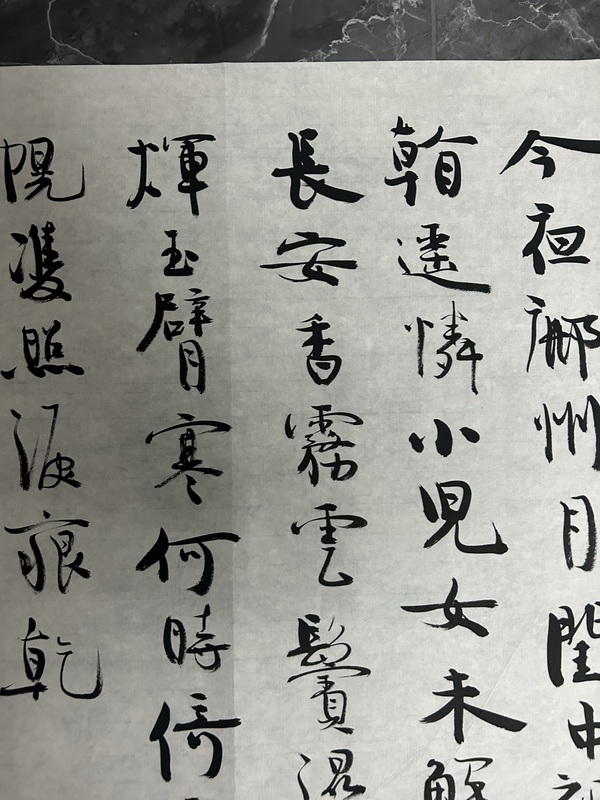 今夜鄜州月閨中
看遙憐小兒女未解
長安香霧雲鬢湿
煇玉臂寒何時倚
幌雙照淚痕乾